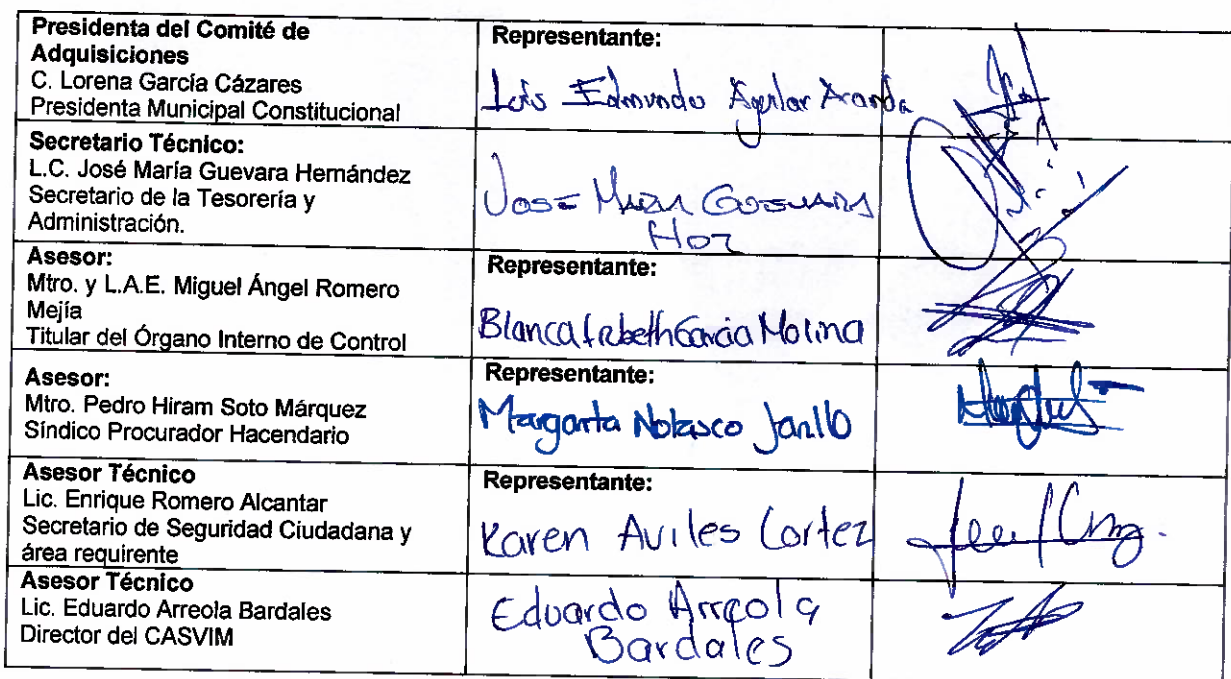 Presidenta del Comité de
Adquisiciones
C. Lorena García Cázares
Presidenta Municipal Constitucional
Representante:
Luis Edmundo Aguilar Aranda
Secretario Técnico:
L.C. José María Guevara Hernández
Secretario de la Tesorería y
Administración.
JOSE MARIA GUEVARA
Asesor:
Mtro. y L.A.E. Miguel Ángel Romero
Mejía
Titular del Órgano Interno de Control
Representante:
Blanca Lizbeth Garcia Molina
Asesor:
Mtro. Pedro Hiram Soto Márquez
Síndico Procurador Hacendario
Representante:
Margarita Nolasco Jarillo
Asesor Técnico
Lic. Enrique Romero Alcantar
Secretario de Seguridad Ciudadana y
área requirente
Representante:
Karen Aviles Cortez
Asesor Técnico
Lic. Eduardo Arreola Bardales
Director del CASVIM
Eduardo Arreola
Bardales